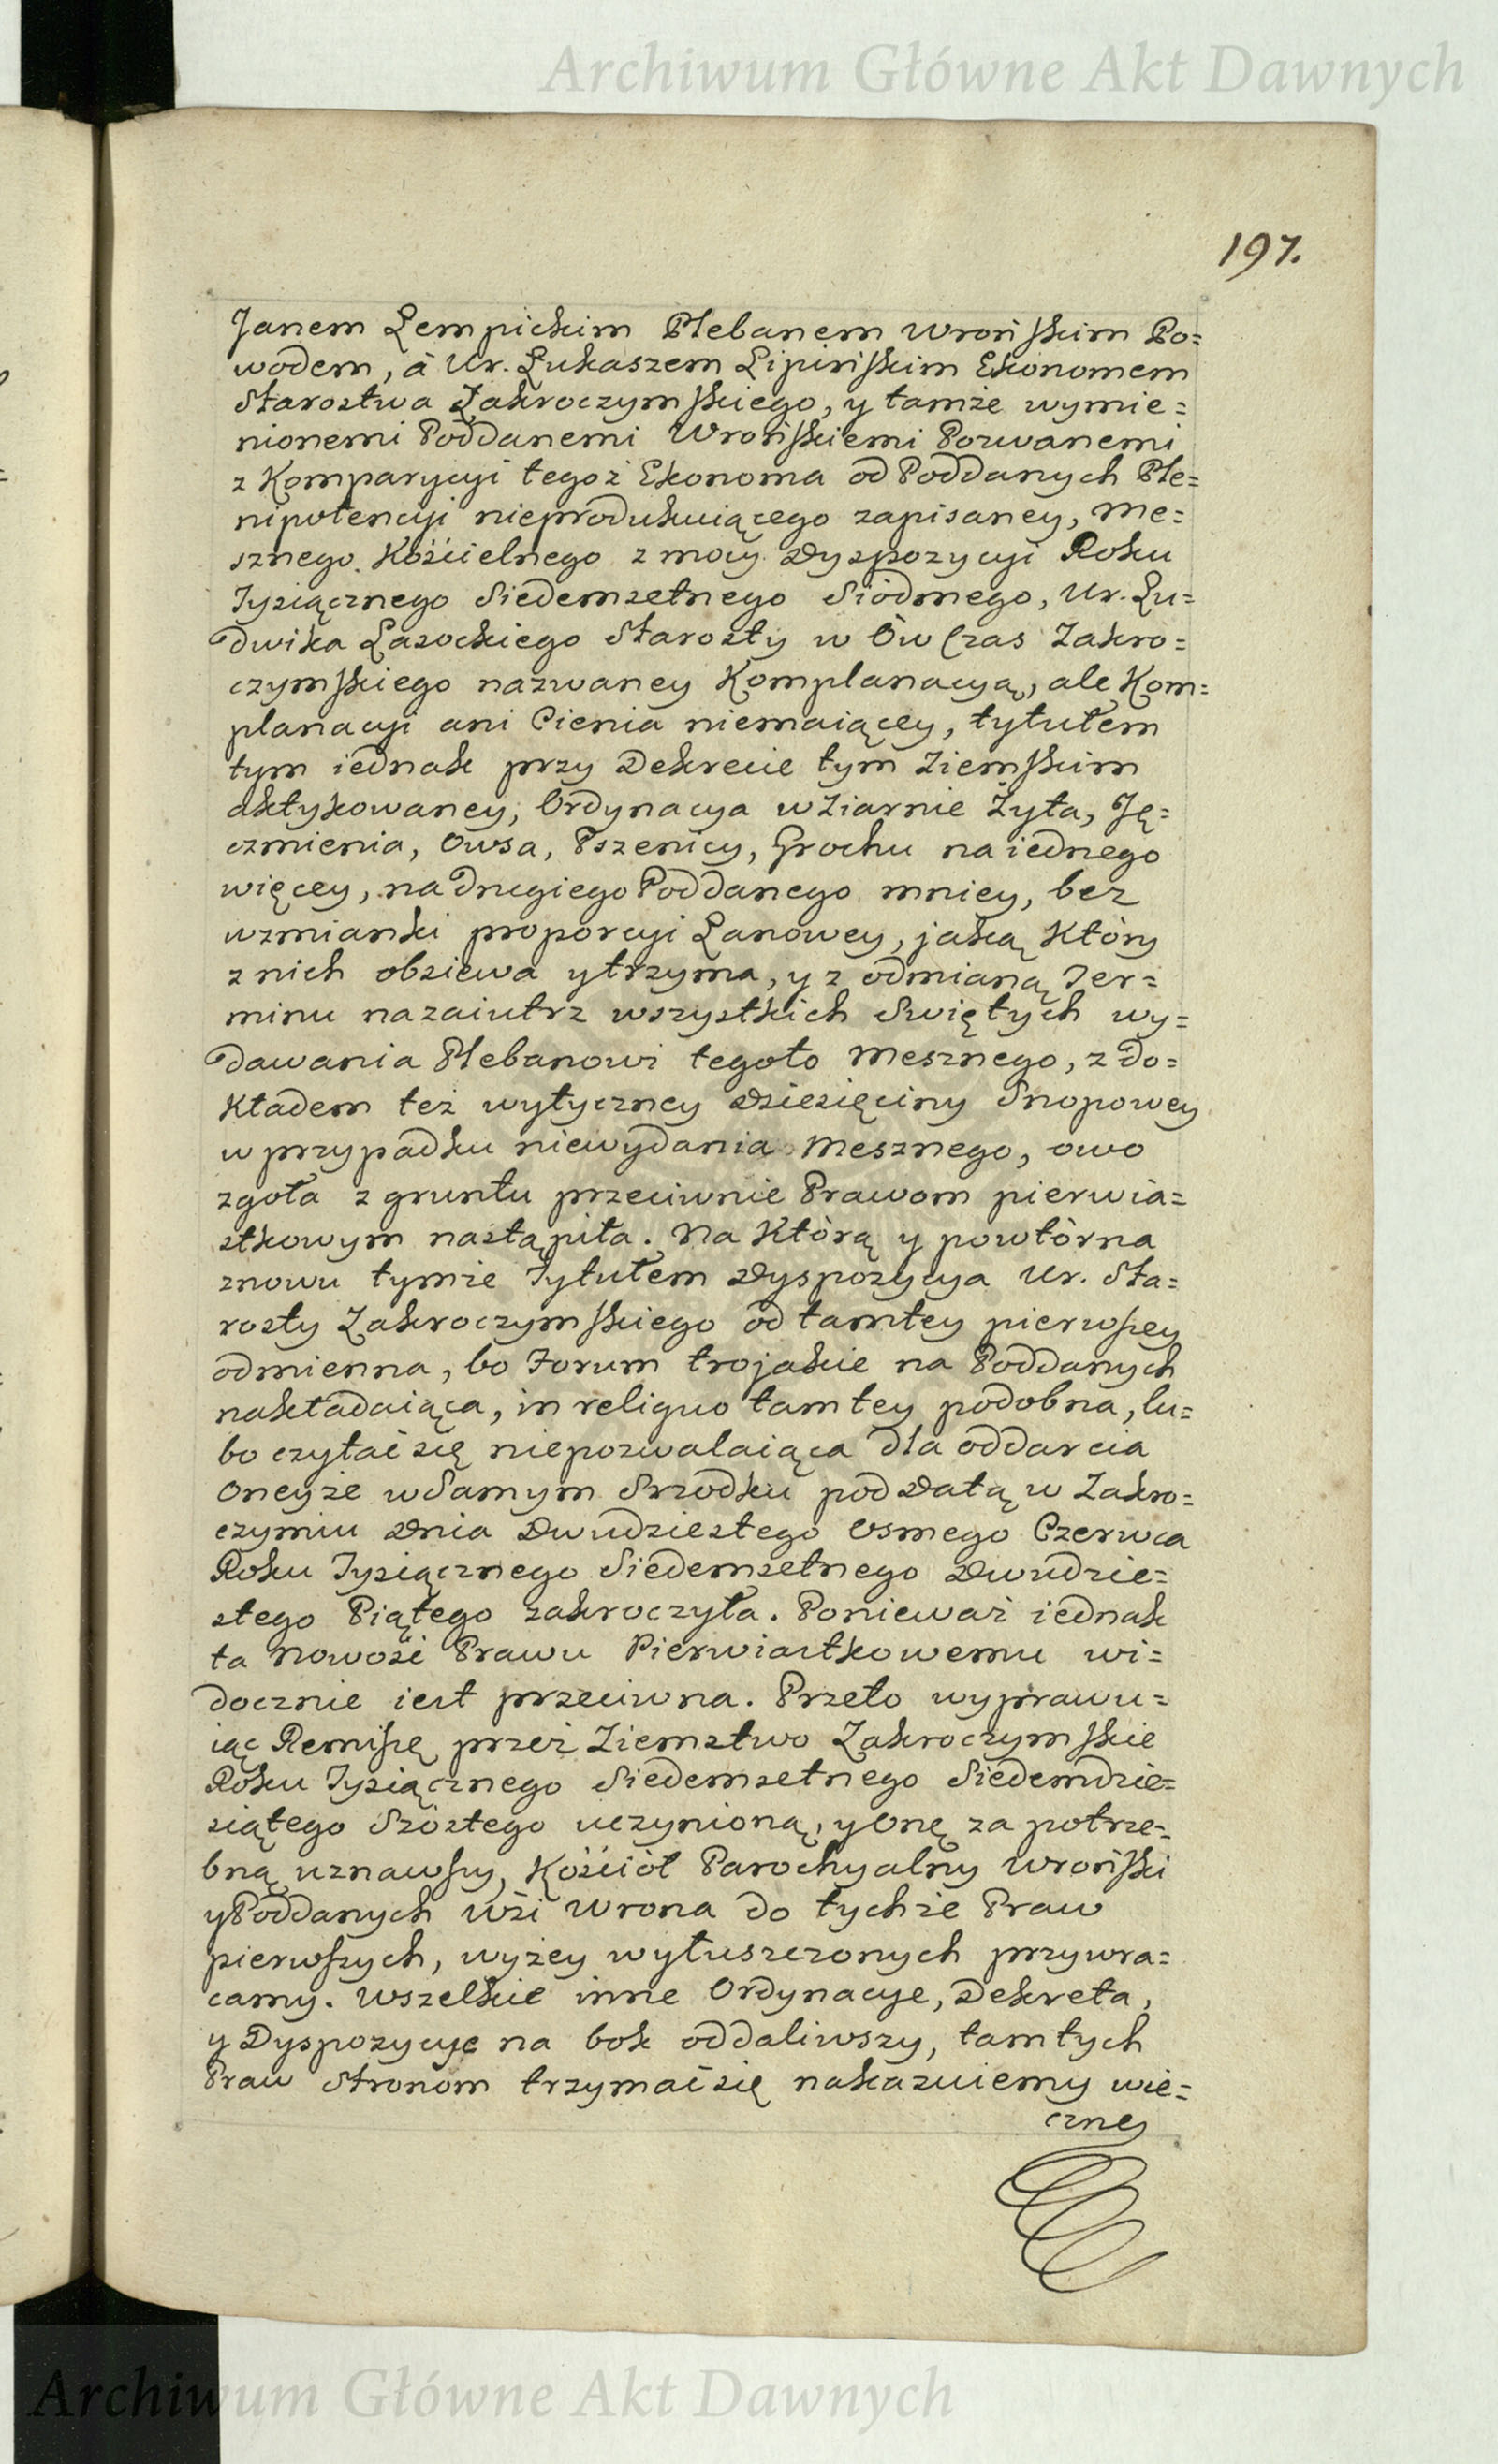 Archiwum Główne Akt Dawnych
197.
Janem Łempickim Plebanem Wrońskim Po=
wodem, á Ur. Łukaszem Lipińskim Ekonomem
Starostwa Zakroczymskiego, y tamże wymie=
nionemi Poddanemi Wrońskiemi Pozwanemi
z Komparycyi tegoż Ekonoma od Poddanych Ple=
nipotencyi nieprodukuiącego zapisaney, Me=
sznego Kościelnego z mocy Dyspozycyi Roku
Tysiącznego Siedemsetnego Siódmego, Ur. Lu=
dwika Lasockiego Starosty w Ów Czas Zakro=
czymskiego nazwaney Komplanacyą, ale Kom=
planacyi ani Cienia niemaiącey, tytułem
tym iednak przy Dekrecie tym Ziemskim
aktykowaney, Ordynacya w Ziarnie Żyta, Ję=
czmienia, Owsa, Pszenicy, Grochu na iednego
więcey, na drugiego Poddanego mniey, bez
wzmianki proporcyi Łanowey, jaką Który
z nich obsiewa y trzyma, y z odmianą Ter=
minu nazaiutrz wszystkich Swiętych wy=
dawania Plebanowi tegoto Mesznego, z do=
kładem też wytyczney Dziesięciny Snopowey
w przypadku niewydania Mesznego, owo
zgoła z gruntu przeciwnie Prawom pierwia=
stkowym nastąpiła. Na Którą y powtórna
znowu tymże Tytułem Dyspozycya Ur. Sta=
rosty Zakroczymskiego od tamtey pierwszey
odmienna, bo Forum trojakie na Poddanych
nakładaiąca, in reliquo tamtey podobna, lu=
bo czytać się niepozwalaiąca dla oddarcia
Oneyże w Samym Srzodku pod Datą w Zakro=
czymiu Dnia Dwudziestego Osmego Czerwca
Roku Tysiącznego Siedemsetnego Dwudzie=
stego Piątego zakroczyła. Ponieważ iednak
ta Nowość Prawu Pierwiastkowemu wi=
docznie iest przeciwna. Przeto wyprawu=
iąc Remissę przez Ziemstwo Zakroczymskie
Roku Tysiącznego Siedemsetnego Siedemdzie=
siątego Szóstego uczynioną, y Onę za potrze=
bną uznawszy, Kościół Parochyalny Wroński
y Poddanych Wsi Wrona do tychże Praw
pierwszych, wyżey wyłuszczonych przywra=
camy. Wszelkie inne Ordynacye, Dekreta,
y Dyspozycye na bok oddaliwszy, tamtych
Praw Stronom trzymać się nakazuiemy wie=
czney
Archiwum Główne Akt Dawnych